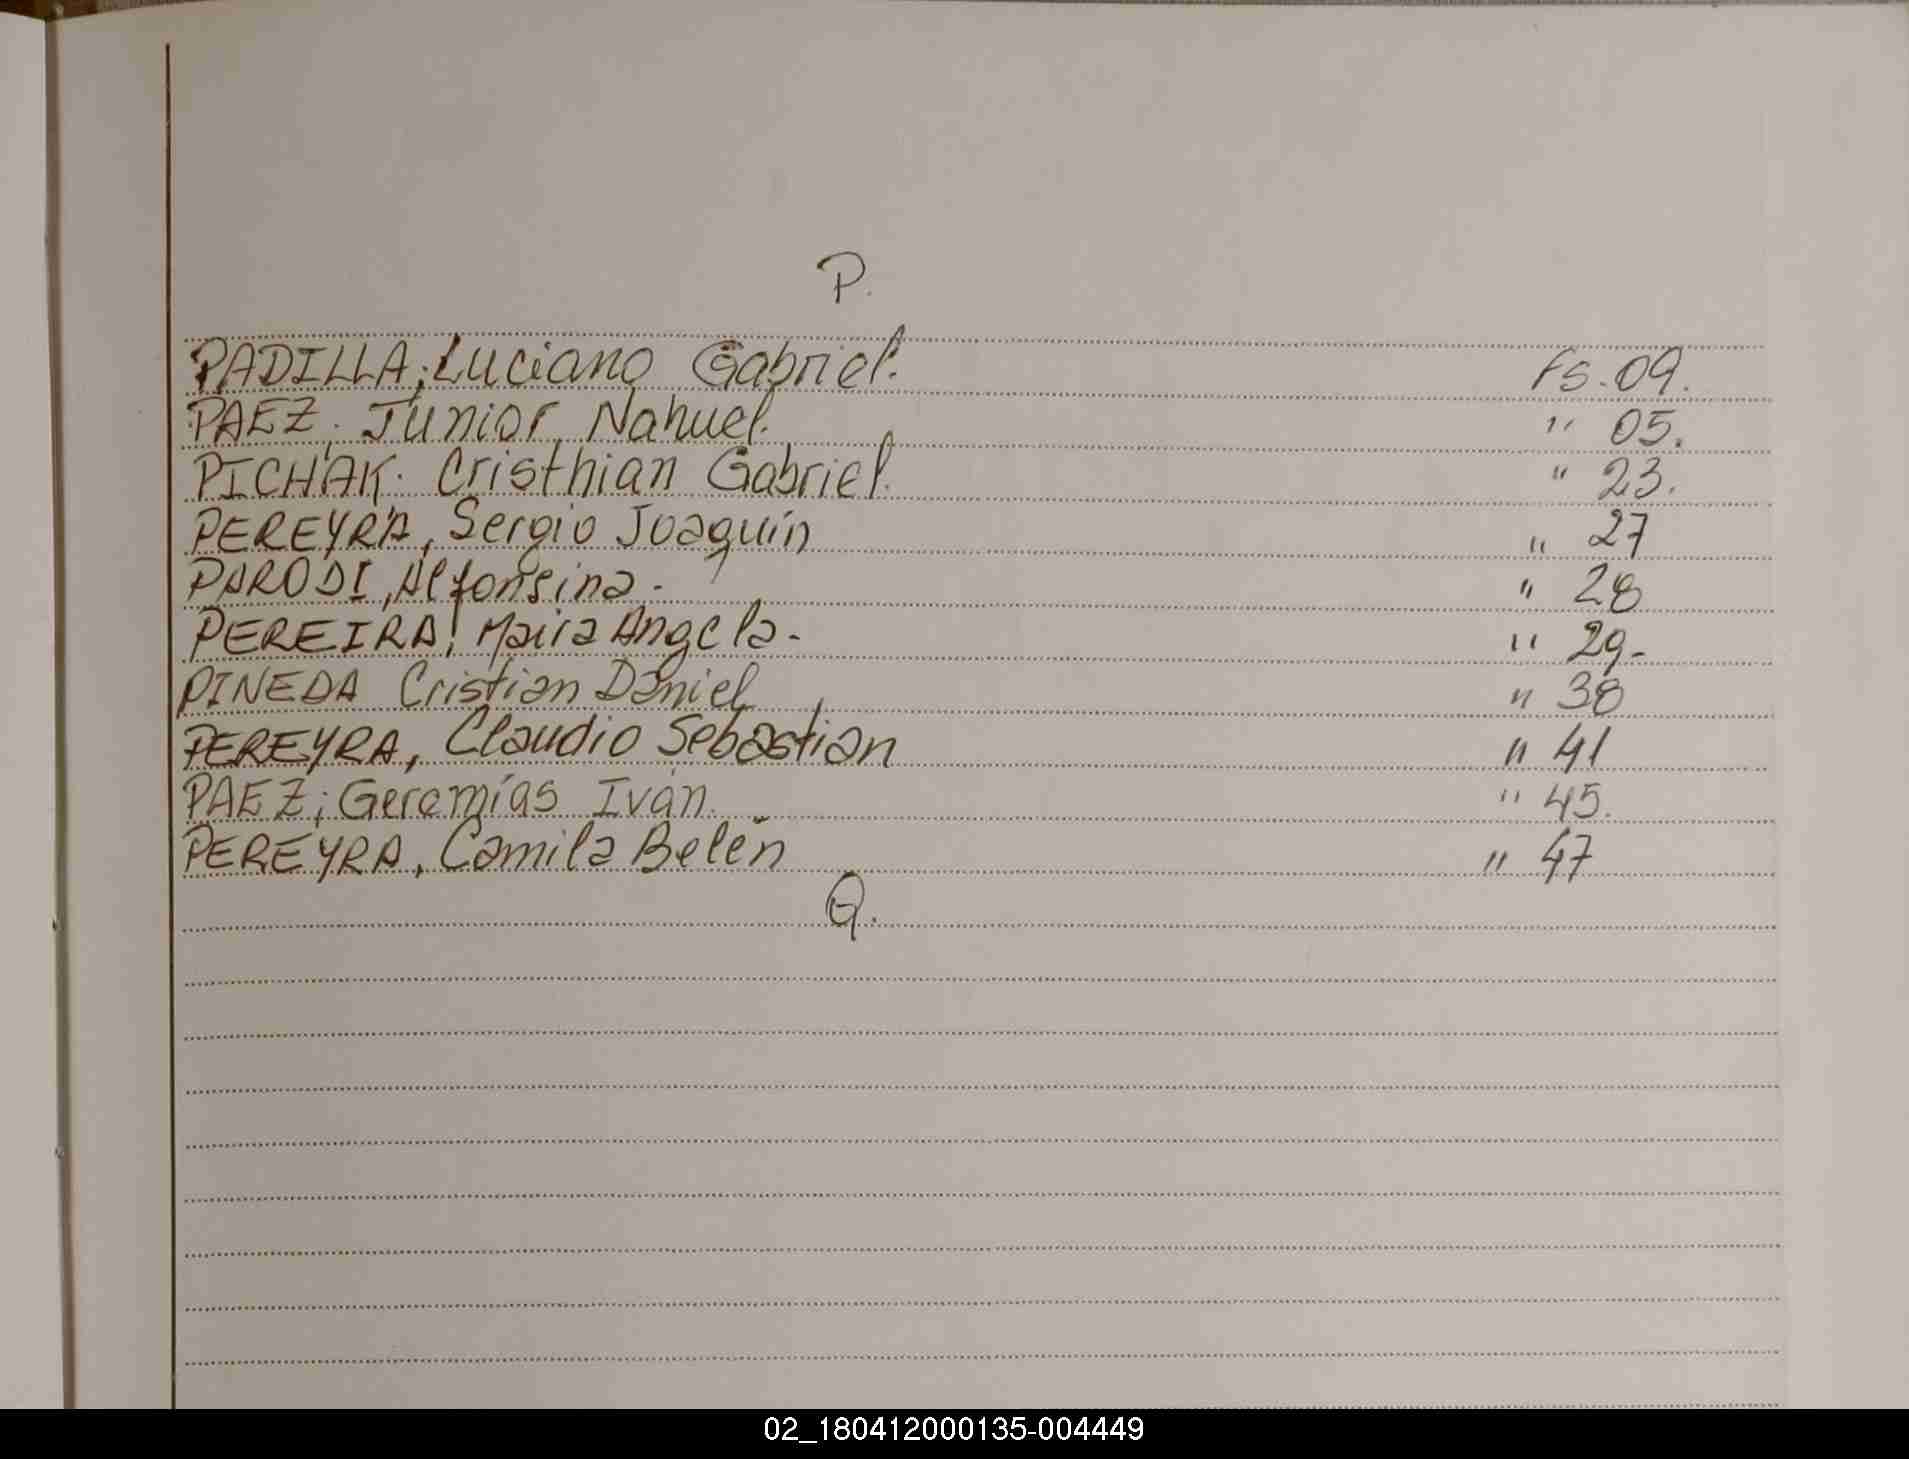 P.
PADILLA; Luciano Gabriel. Fs. 09.
PAEZ, Junior Nahuel. " 05.
PICHAK. Cristhian Gabriel. " 23.
PEREYRA, Sergio Joaquín " 27
PARODI, Alfonsina. " 28
PEREIRA, Maira Angela- " 29-
PINEDA Cristian Daniel " 38
PEREYRA, Claudio Sebastian " 41
PAEZ; Geremías Iván. " 45.
PEREYRA, Camila Belén " 47
Q.
02_180412000135-004449